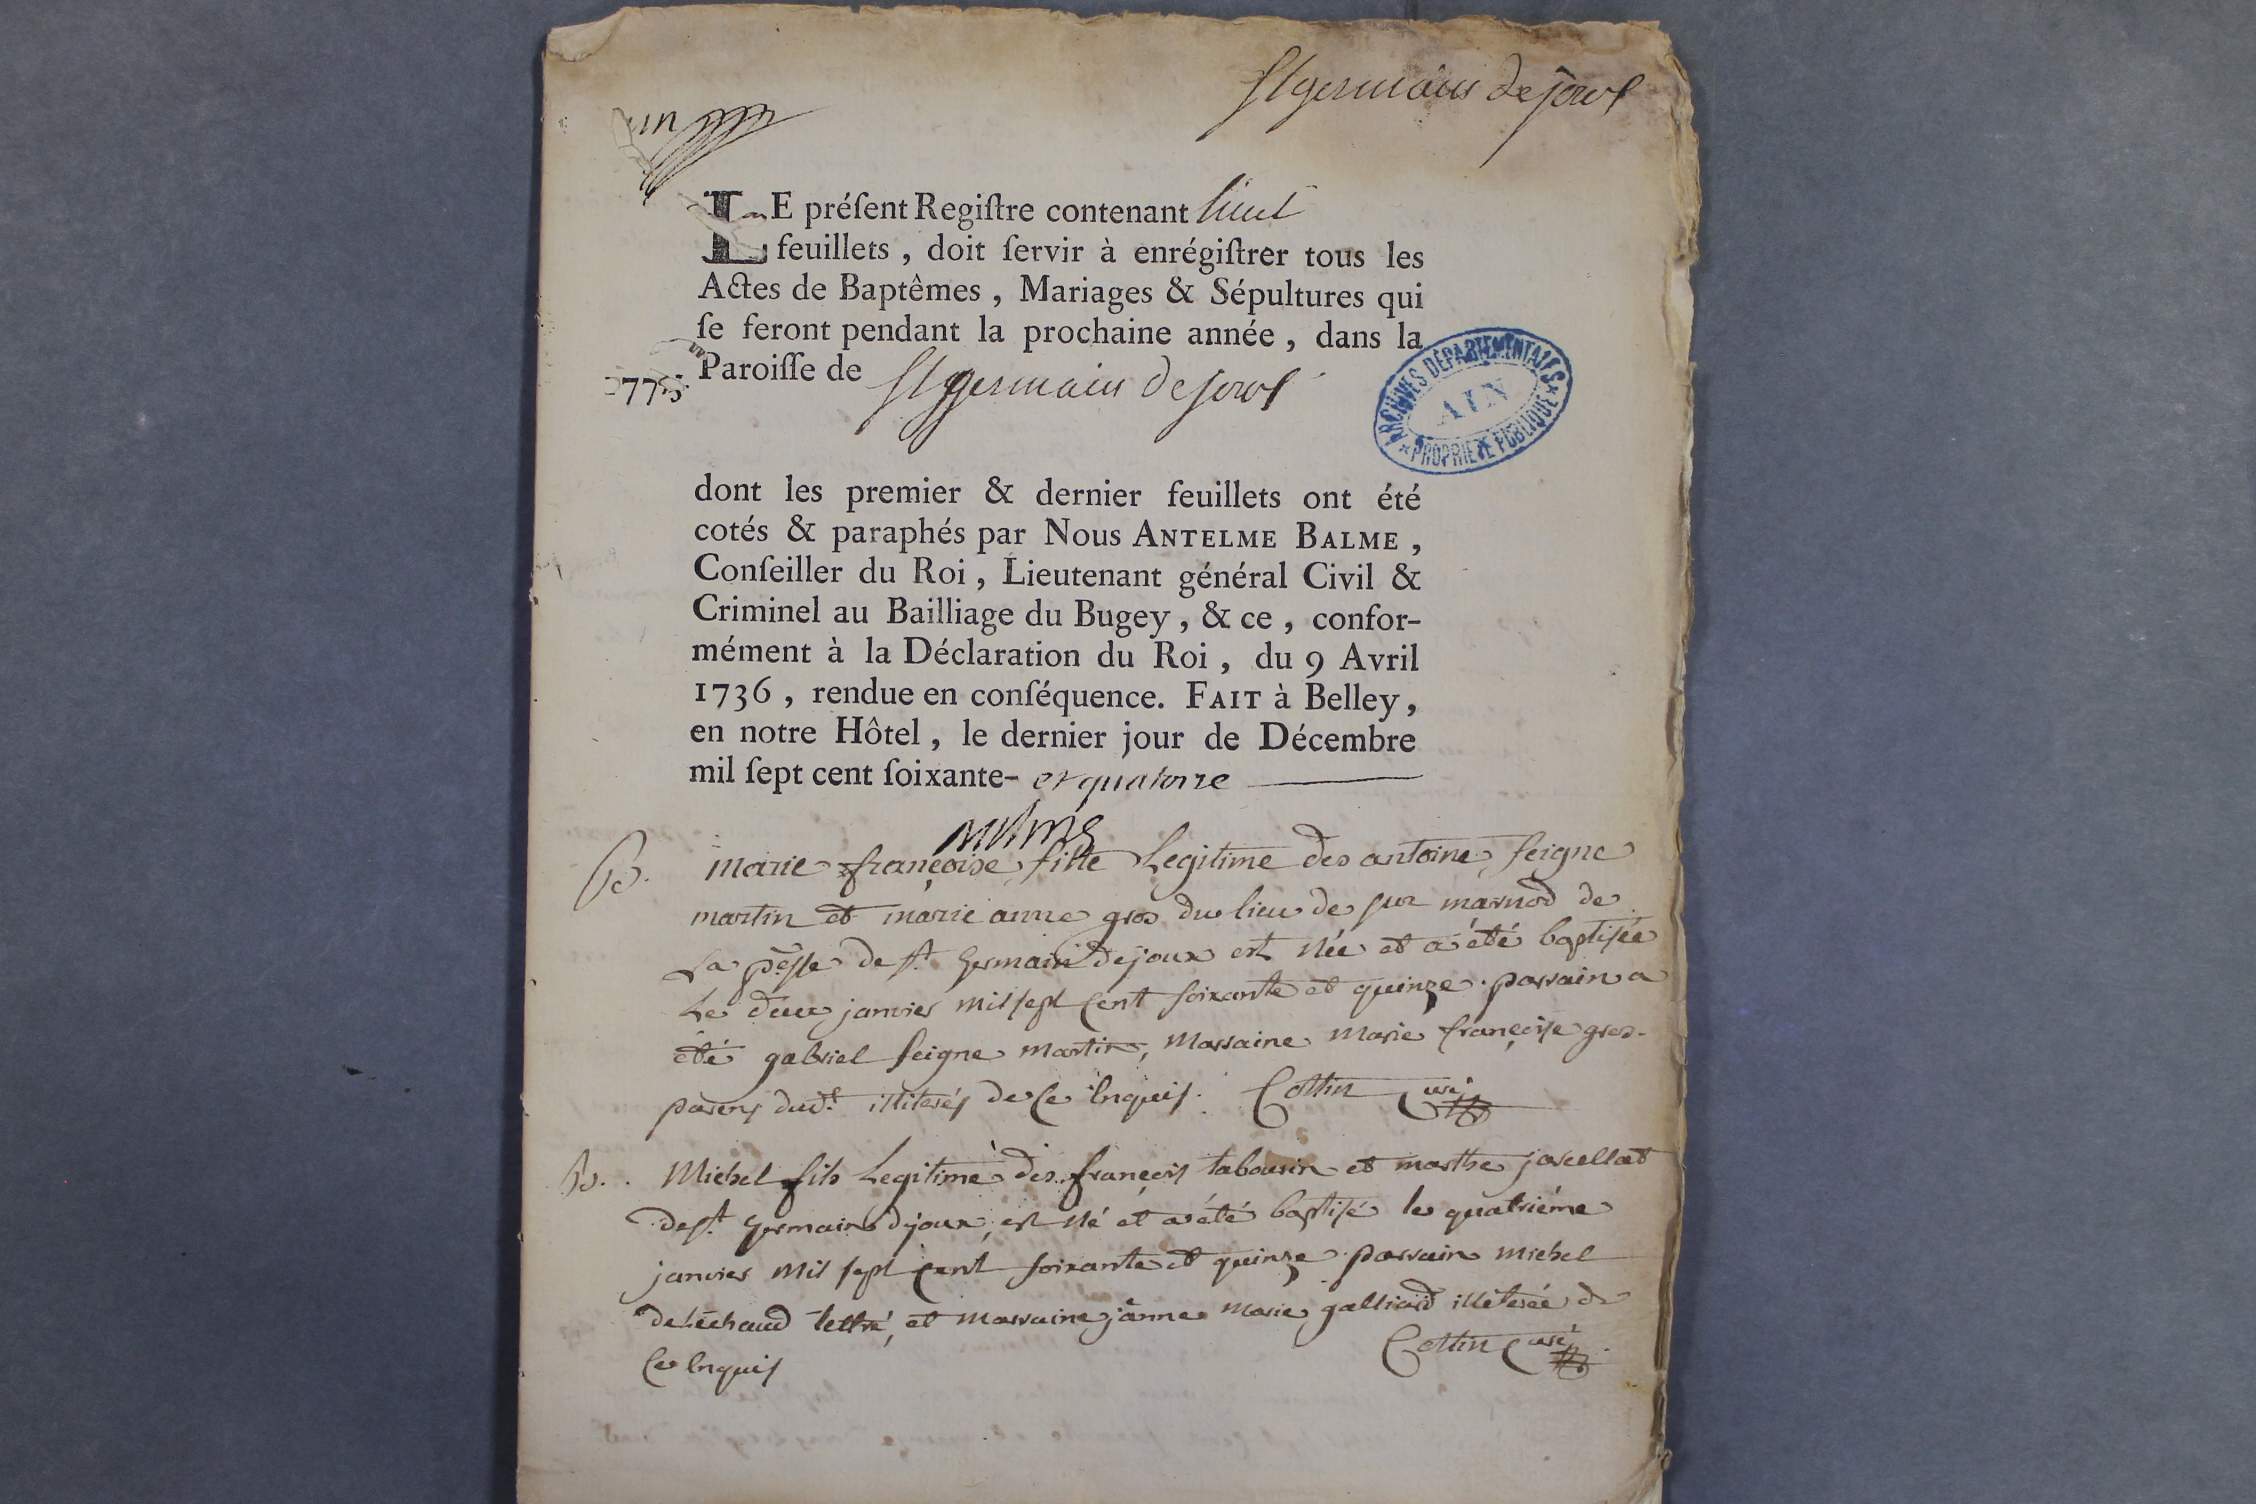 St germain de joux
un
LE préſent Regiſtre contenant huit
feuillets , doit ſervir à enrégiſtrer tous les
Actes de Baptêmes , Mariages & Sépultures qui
ſe feront pendant la prochaine année , dans la
Paroiſſe de St germain de joux
1775.
ARCHIVES DÉPARTEMENTALES
AIN
PROPRIÉTÉ PUBLIQUE
dont les premier & dernier feuillets ont été
cotés & paraphés par Nous ANTELME BALME ,
Conſeiller du Roi , Lieutenant général Civil &
Criminel au Bailliage du Bugey , & ce , confor-
mément à la Déclaration du Roi , du 9 Avril
1736 , rendue en conſéquence. FAIT à Belley ,
en notre Hôtel , le dernier jour de Décembre
mil ſept cent ſoixante- et quatorze
B. Marie françoise fille Legitime des antoine seigne
martin et marie anne gros du lieu de sur marnod de
La pesse de st germain de joux est née et a été baptisée
Le deux janvier mil sept cent soixante et quinze. parrain a
été gabriel seigne martin, marraine Marie françoise gros.
parens dud.t illiterés de ce enquis. Cottin curé
B. Michel fils Legitime des françois tabourin et marthe jarcellat
de st germain djoux, est né et a été baptisé le quatriéme
janvier mil sept cent soixante et quinze parrain michel
deléchaud lettré, et marraine jänne Marie galliard illeterée de
Ce enquis Cottin curé